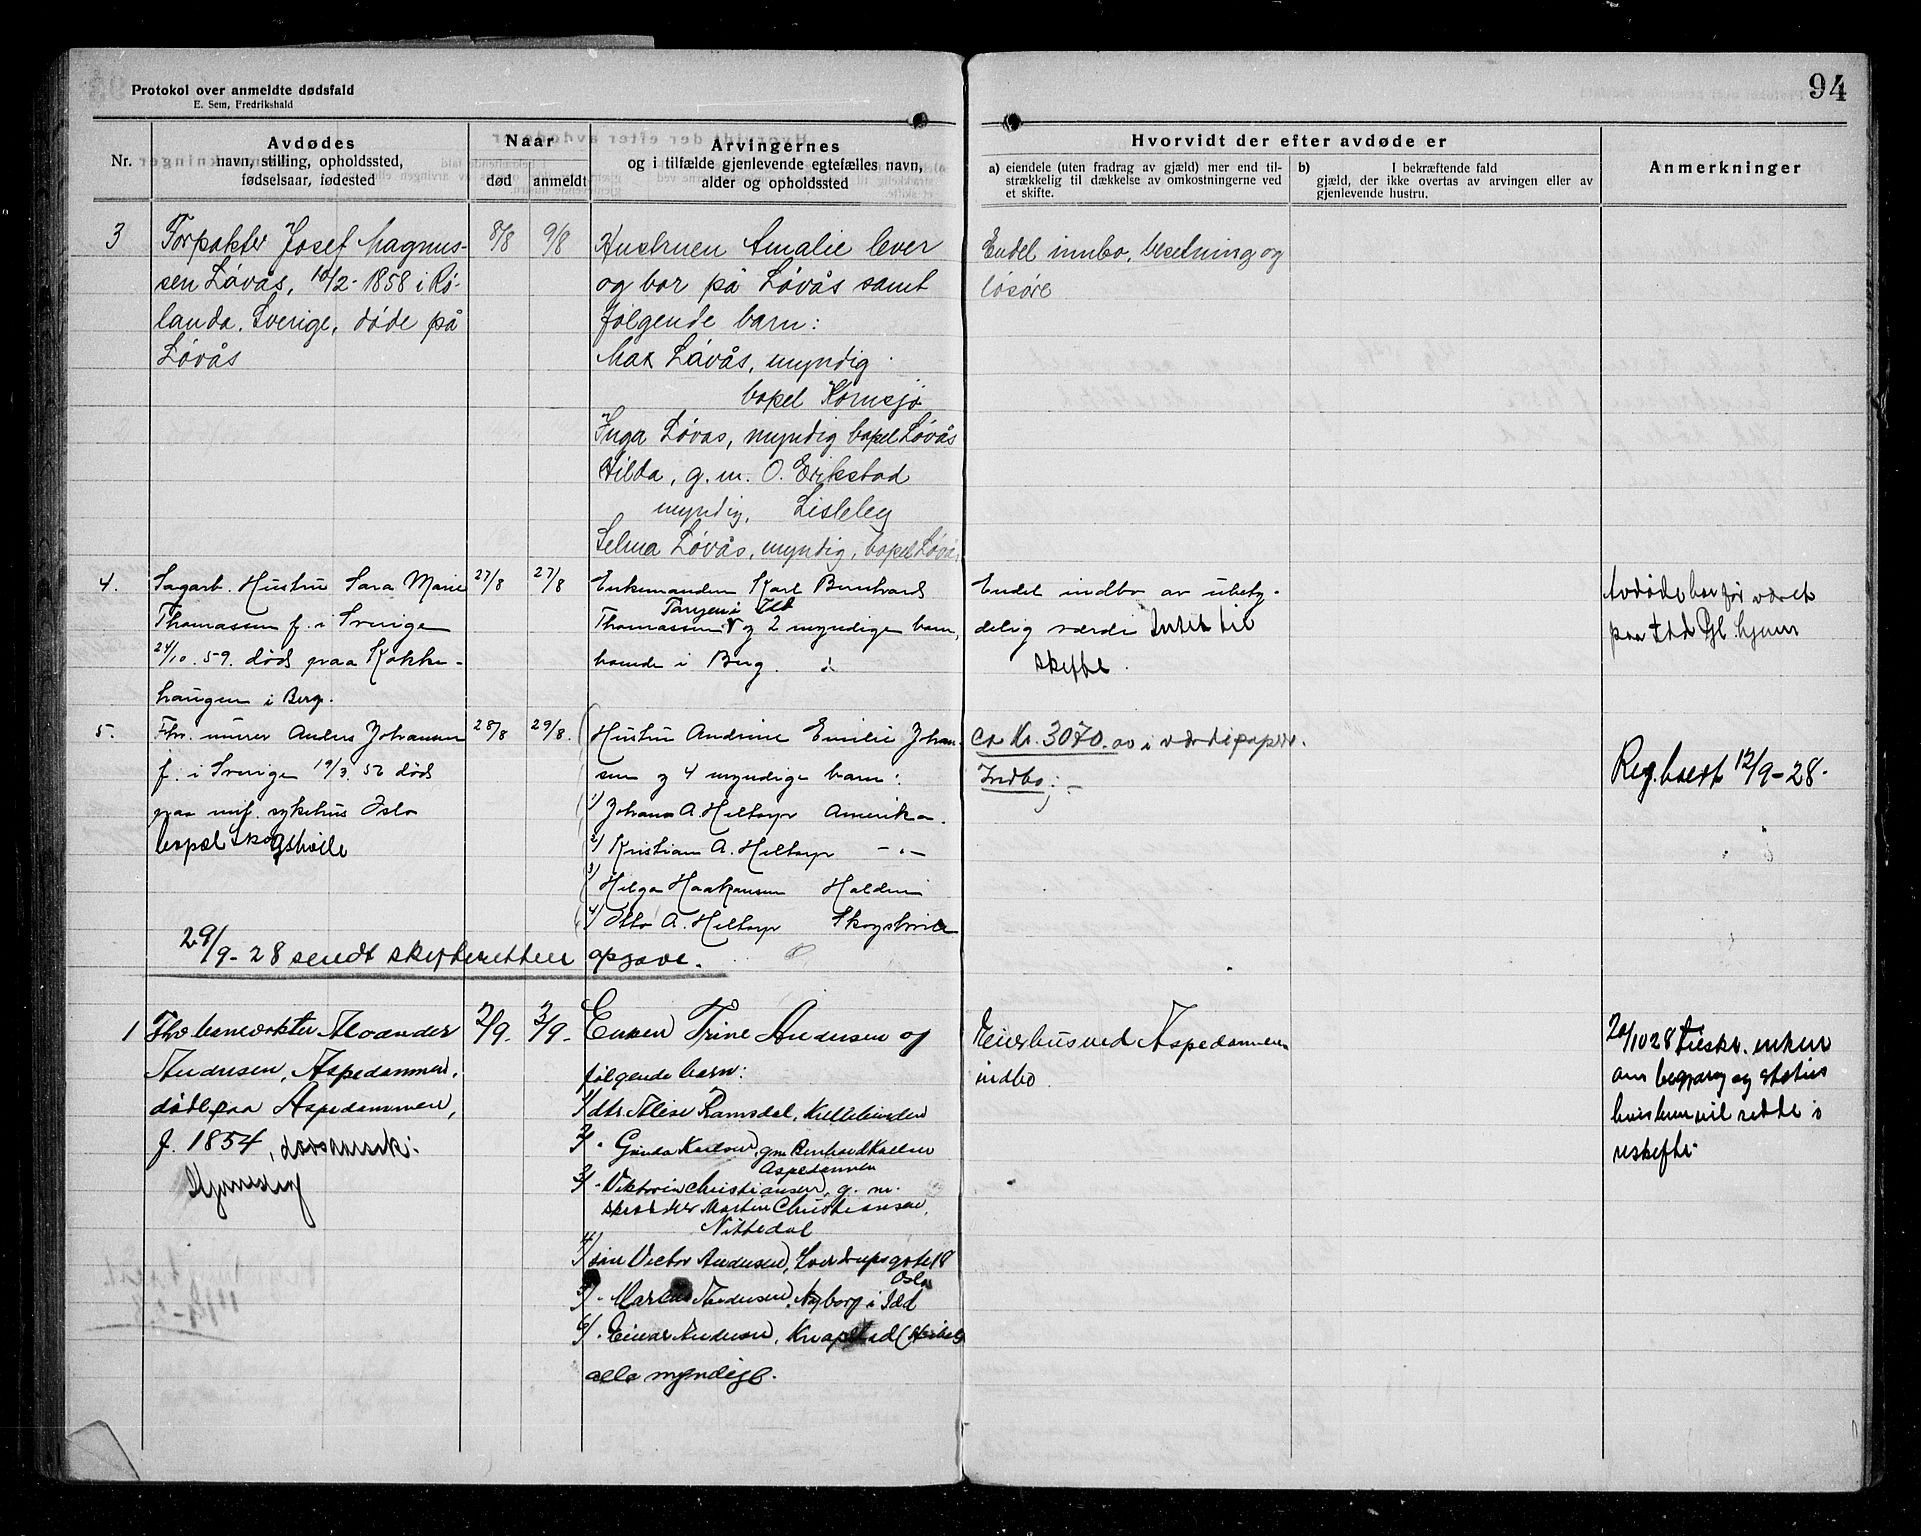 94
Protokol over anmeldte dødsfald
E. Sem, Fredrikshald
Nr.
Avdødes
navn, stilling, opholdssted,
fødselsaar, fødested
Naar
død
anmeldt
Arvingernes
og i tilfælde gjenlevende egtefælles navn,
alder og opholdssted
Hvorvidt der efter avdøde er
a) eiendele (uten fradrag av gjæld) mer end til-
strækkelig til dækkelse av omkostningerne ved
et skifte.
b) I bekræftende fald
gjæld, der ikke overtas av arvingen eller av
gjenlevende hustru.
Anmerkninger
3
Forpakter Josef Magnus-
sen Løvås, 10/2-1858 i Rø-
landa, Sverige, døde på
Løvås
8/8
9/8
Hustruen Amalie lever
og bor på Løvås samt
følgende barn:
Max Løvås, myndig
bopel Kornsjø
Inga Løvås, myndig bopel Løvås
Hilda, g. m. O. Erikstad
myndig, Lisleby
Selma Løvås, myndig, bopel Løvås
Endel innbo, besetning og
løsøre
4.
Sagarb. Hustru Sara Marie
Thomassen f. i Sverige
24/10. 59. død paa Kokke-
haugen i Berg.
27/8
27/8
Enkemanden Karl Berntvard
Tangen i Idd
Thomassen og 2 myndige barn,
boende i Berg.
Endel indbo av ubety-
delig værdi Intet til
skifte.
Avdøde har før været
paa Idd Gl. hjem
5.
Fhv. murer Anders Johansen
f. i Sverige 19/3. 52 død
paa sykehus Oslo
bopæl Skogstvile
28/8
29/8.
Hustru Andrine Emilie Johan-
sen og 4 myndige barn:
1) Johann A. Heltorp Amerika.
2) Kristian A. Heltorp -"-
3) Helga Haakansen Halden
4) Otto A. Heltorp Skogstvile
ca Kr. 3070.00 i værdipapir.
Indbo;-
Reg. holdt 12/9-28.
29/9-28 sendt skifteretten opgave.
1
Fhv banevokter Alvander
Andresen, Aspedammen,
døde paa Aspedammen,
f. 1854,
2/9.
3/9.
Enken Trine Andersen og
følgende barn:
1) dtr. Alise Ramsdal,
2) " Gunda Karlsen, gm Bernhard Karlsen
Aspedammen
3) " Viktoria Christiansen, g. m.
skrædder Martin Christiansen,
Nittedal
4) søn Victor Andersen, Sverdrupsgate 18
Oslo
5) " Marius Andersen, Nyborg i Idd
6) " Einar Andersen, Knapstad
alle myndige.
Eier hus ved Aspedammen
indbo
20/10 28 tilskr. enken
om begjæring og status
hvis hun vil sidde i
uskifte